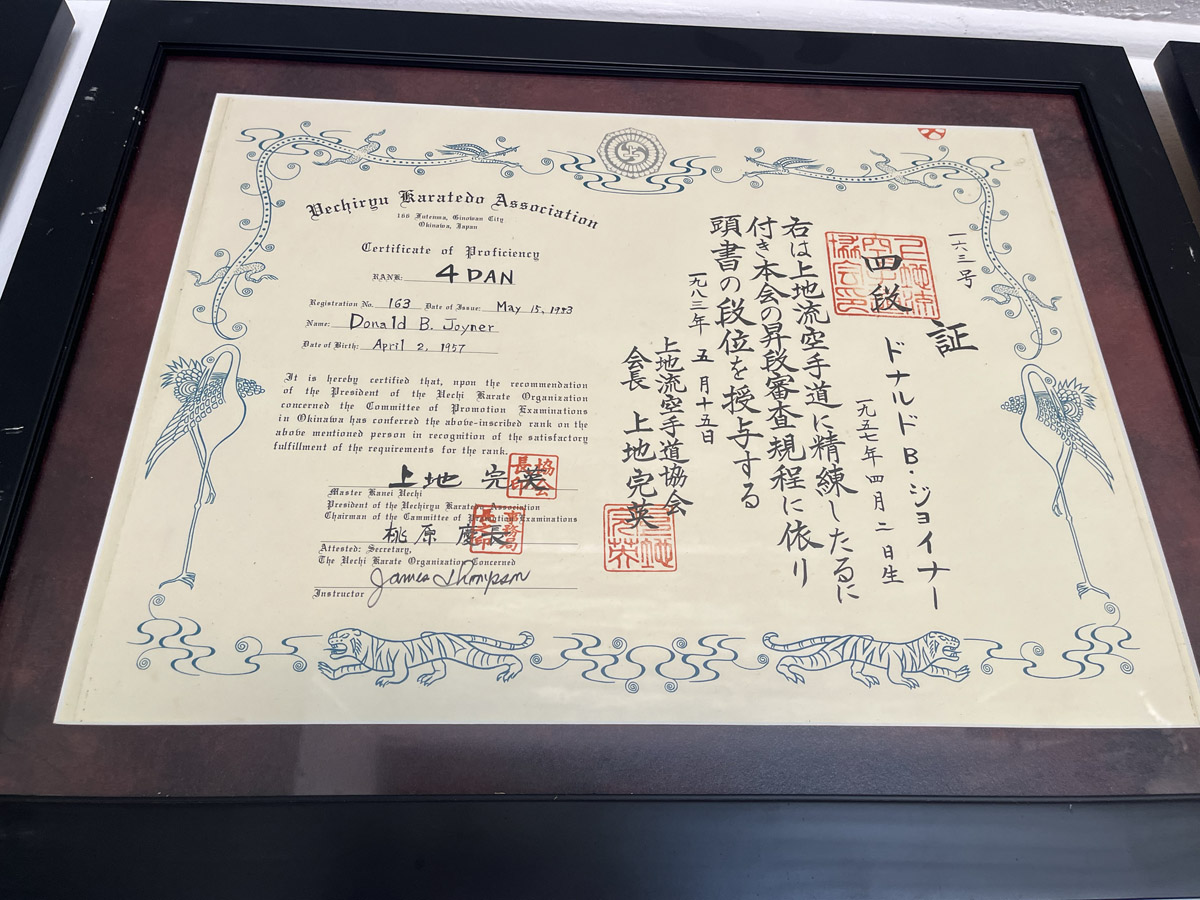 Uechiryu Karatedo Association
166 Futenma, Ginowan City
Okinawa, Japan
Certificate of Proficiency
RANK: 4 DAN
Registration No. 163 Date of Issue: May 15, 1983
Name: Donald B. Joyner
Date of Birth: April 2, 1957
It is hereby certified that, upon the recommendation
of the President of the Uechi Karate Organization
concerned the Committee of Promotion Examinations
in Okinawa has conferred the above-inscribed rank on the
above mentioned person in recognition of the satisfactory
fulfillment of the requirements for the rank.
上地 完英
協会長印
Master Kanei Uechi
President of the Uechiryu Karatedo Association
Chairman of the Cammittee of Promotion Examinations
桃原 慶長
Attested: Secretary,
The Uechi Karate Organization Concerned
James Thompson
Instructor
一六三号
証
四段
ドナルドB・ジョイナー
一九五七年四月二日生
右は上地流空手道に精練したるに
付き本会の昇段審査規程に依り
頭書の段位を授与する
一九八三年 五月十五日
上地流空手道協会
会長 上地完英